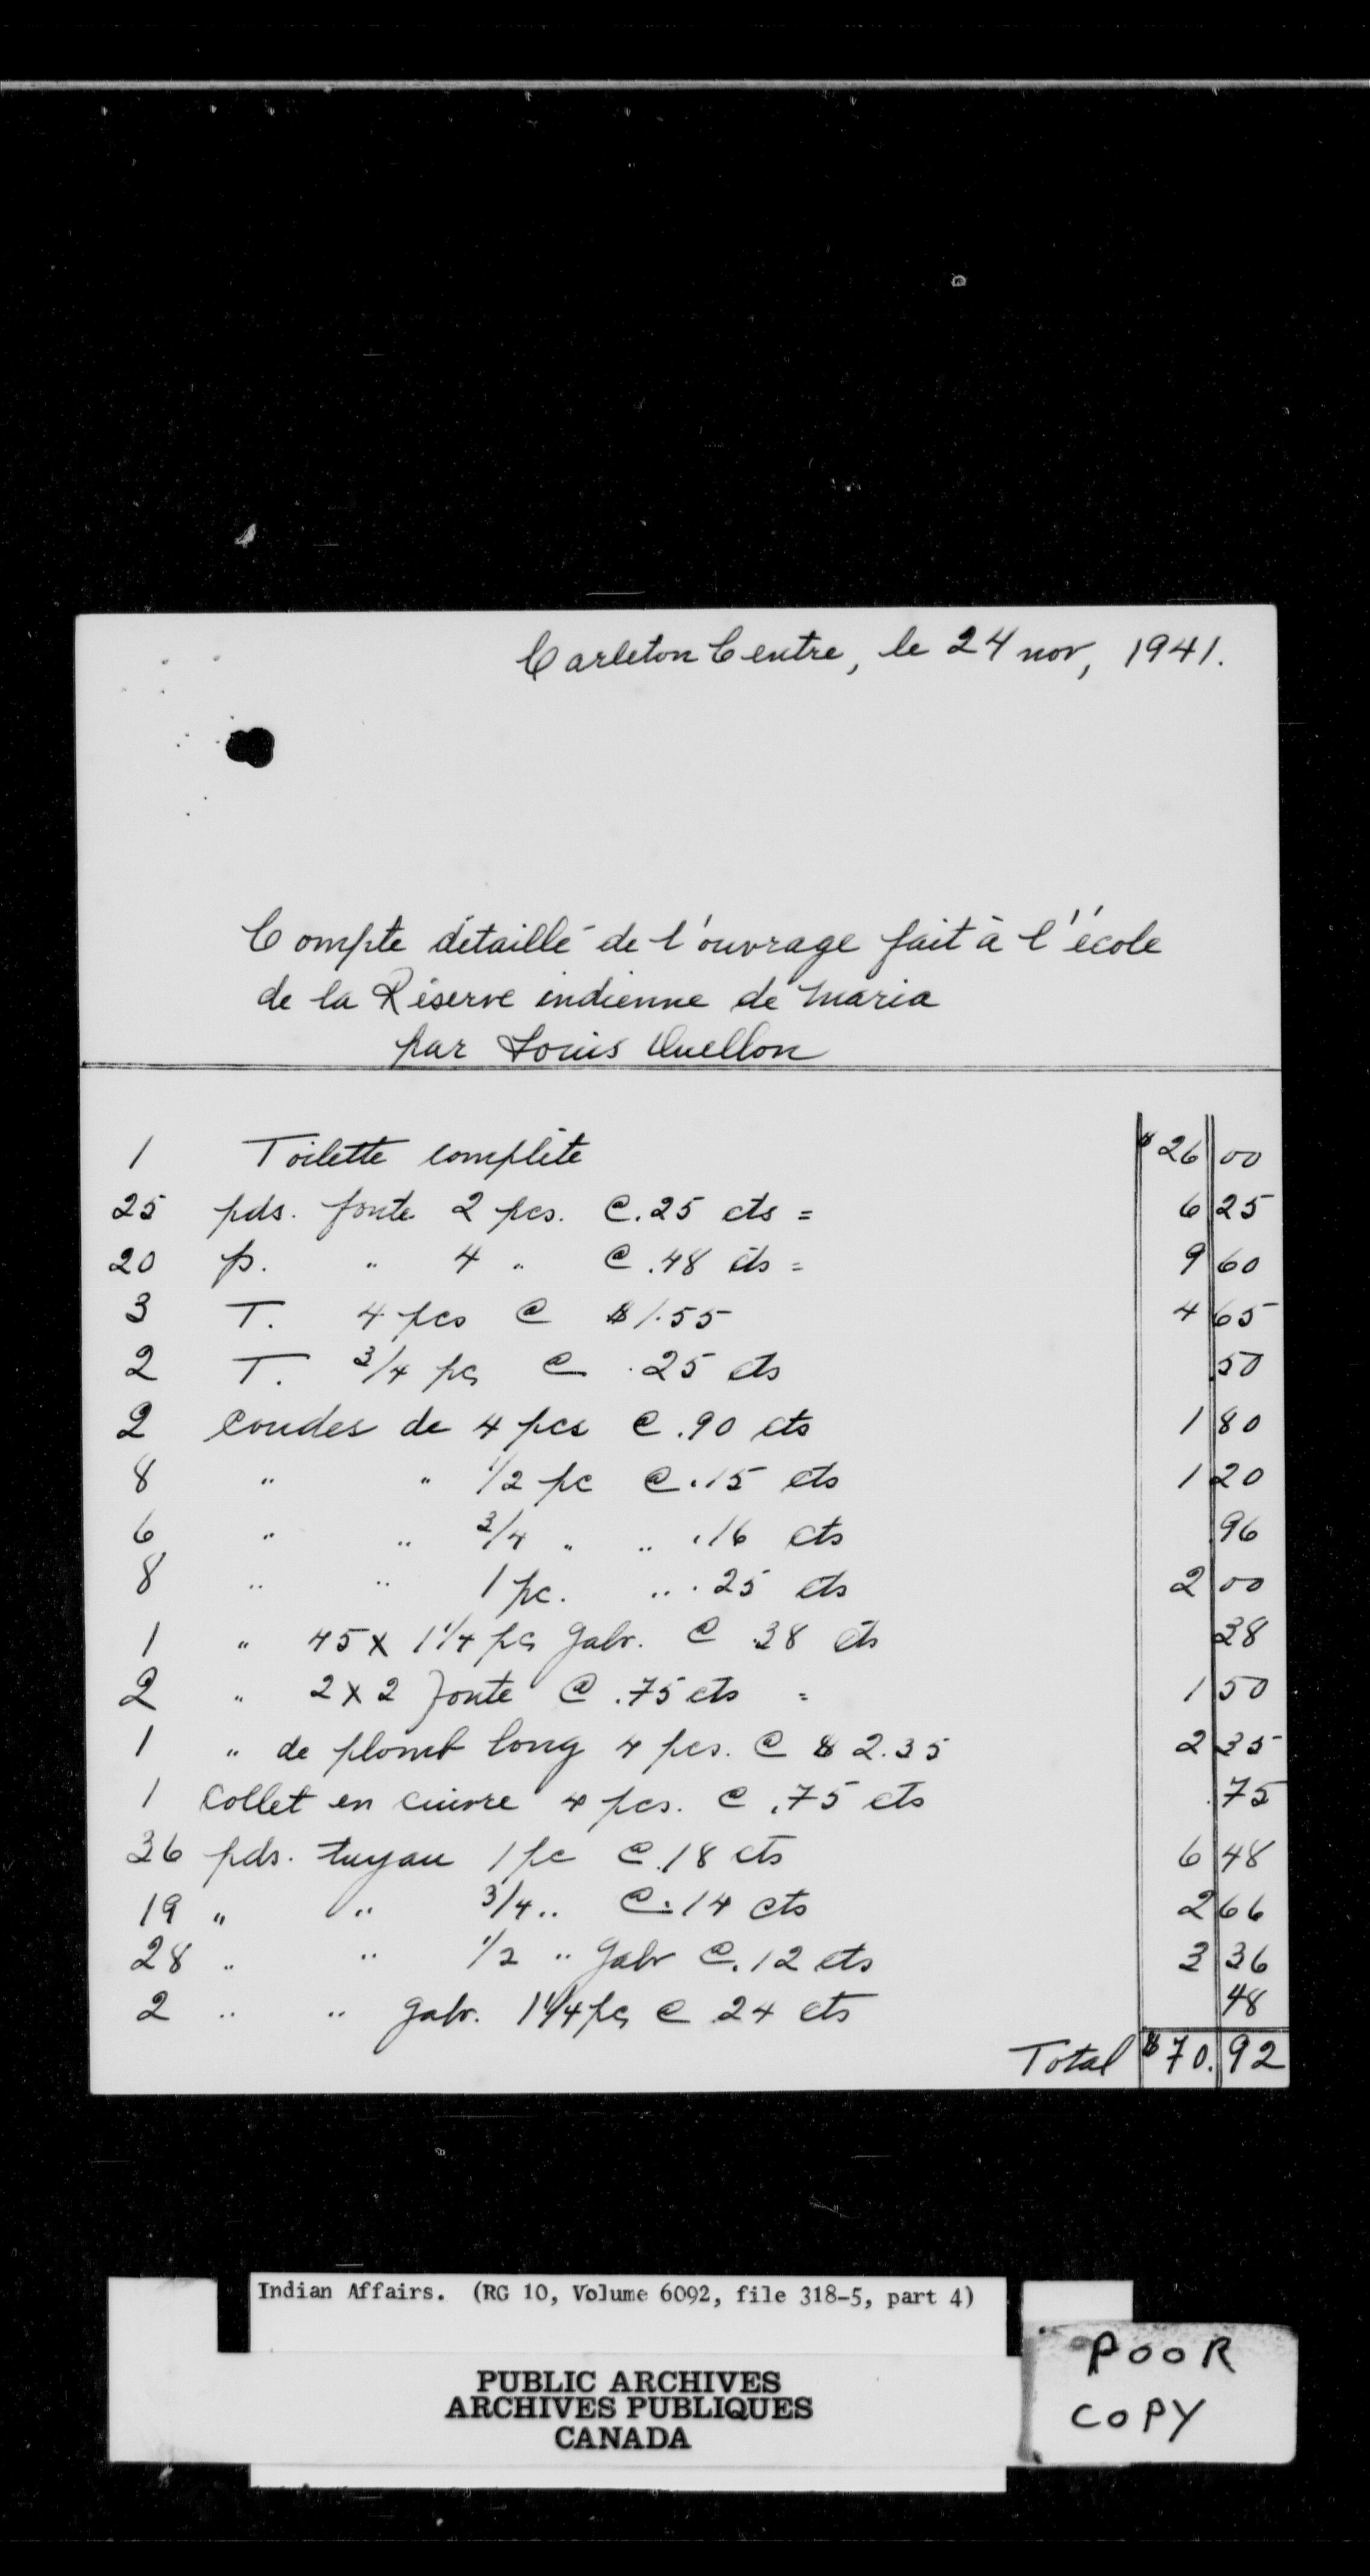 Carleton Centre, le 24 nov, 1941.
Compte détaillé de l'ouvrage fait à l'école
de la Réserve indienne de Maria
par Louis Ouellon
1 Toilette complète $26 00
25 pds. fonte 2 pcs. @ .25 cts = 6 25
20 p. " 4 " @ .48 cts = 9 60
3 T. 4 pcs @ $1.55 4 65
2 T. 3/4 pc @ .25 cts .50
2 coudes de 4 pcs @ .90 cts 1 80
8 " " 1/2 pc @ .15 cts 1 20
6 " " 3/4 " " .16 cts .96
8 " " 1 pc. " .25 cts 2 00
1 " 45 x 1 1/4 pc galv. @ .38 cts .38
2 " 2 x 2 fonte @ .75 cts = 1 50
1 " de plomb long 4 pcs. @ $2.35 2 35
1 Collet en cuivre 4 pcs. @ .75 cts .75
36 pds. tuyau 1 pc @ .18 cts 6 48
19 " " 3/4 " @ .14 cts 2 66
28 " " 1/2 " galv @ .12 cts 3 36
2 " " galv. 1 1/4 pc @ .24 cts 48
Total $70.92
Indian Affairs. (RG 10, Volume 6092, file 318-5, part 4)
PUBLIC ARCHIVES
ARCHIVES PUBLIQUES
CANADA
POOR
COPY